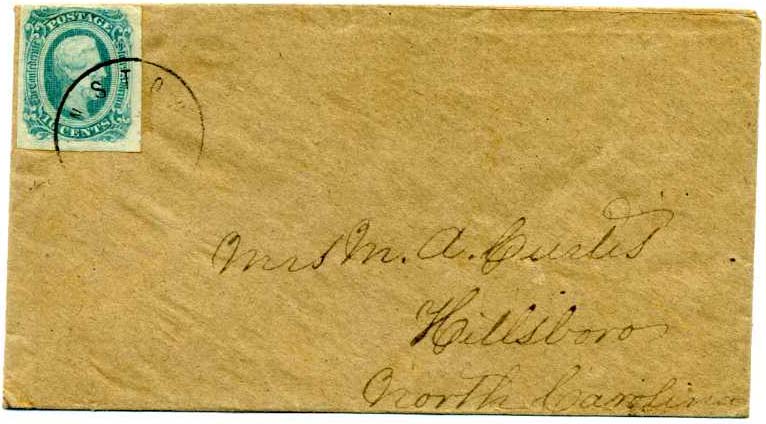 POSTAGE
The Confederate States of America
10 CENTS
NSTO
Mrs M. A. Curtis
Hillsboro
North Carolina